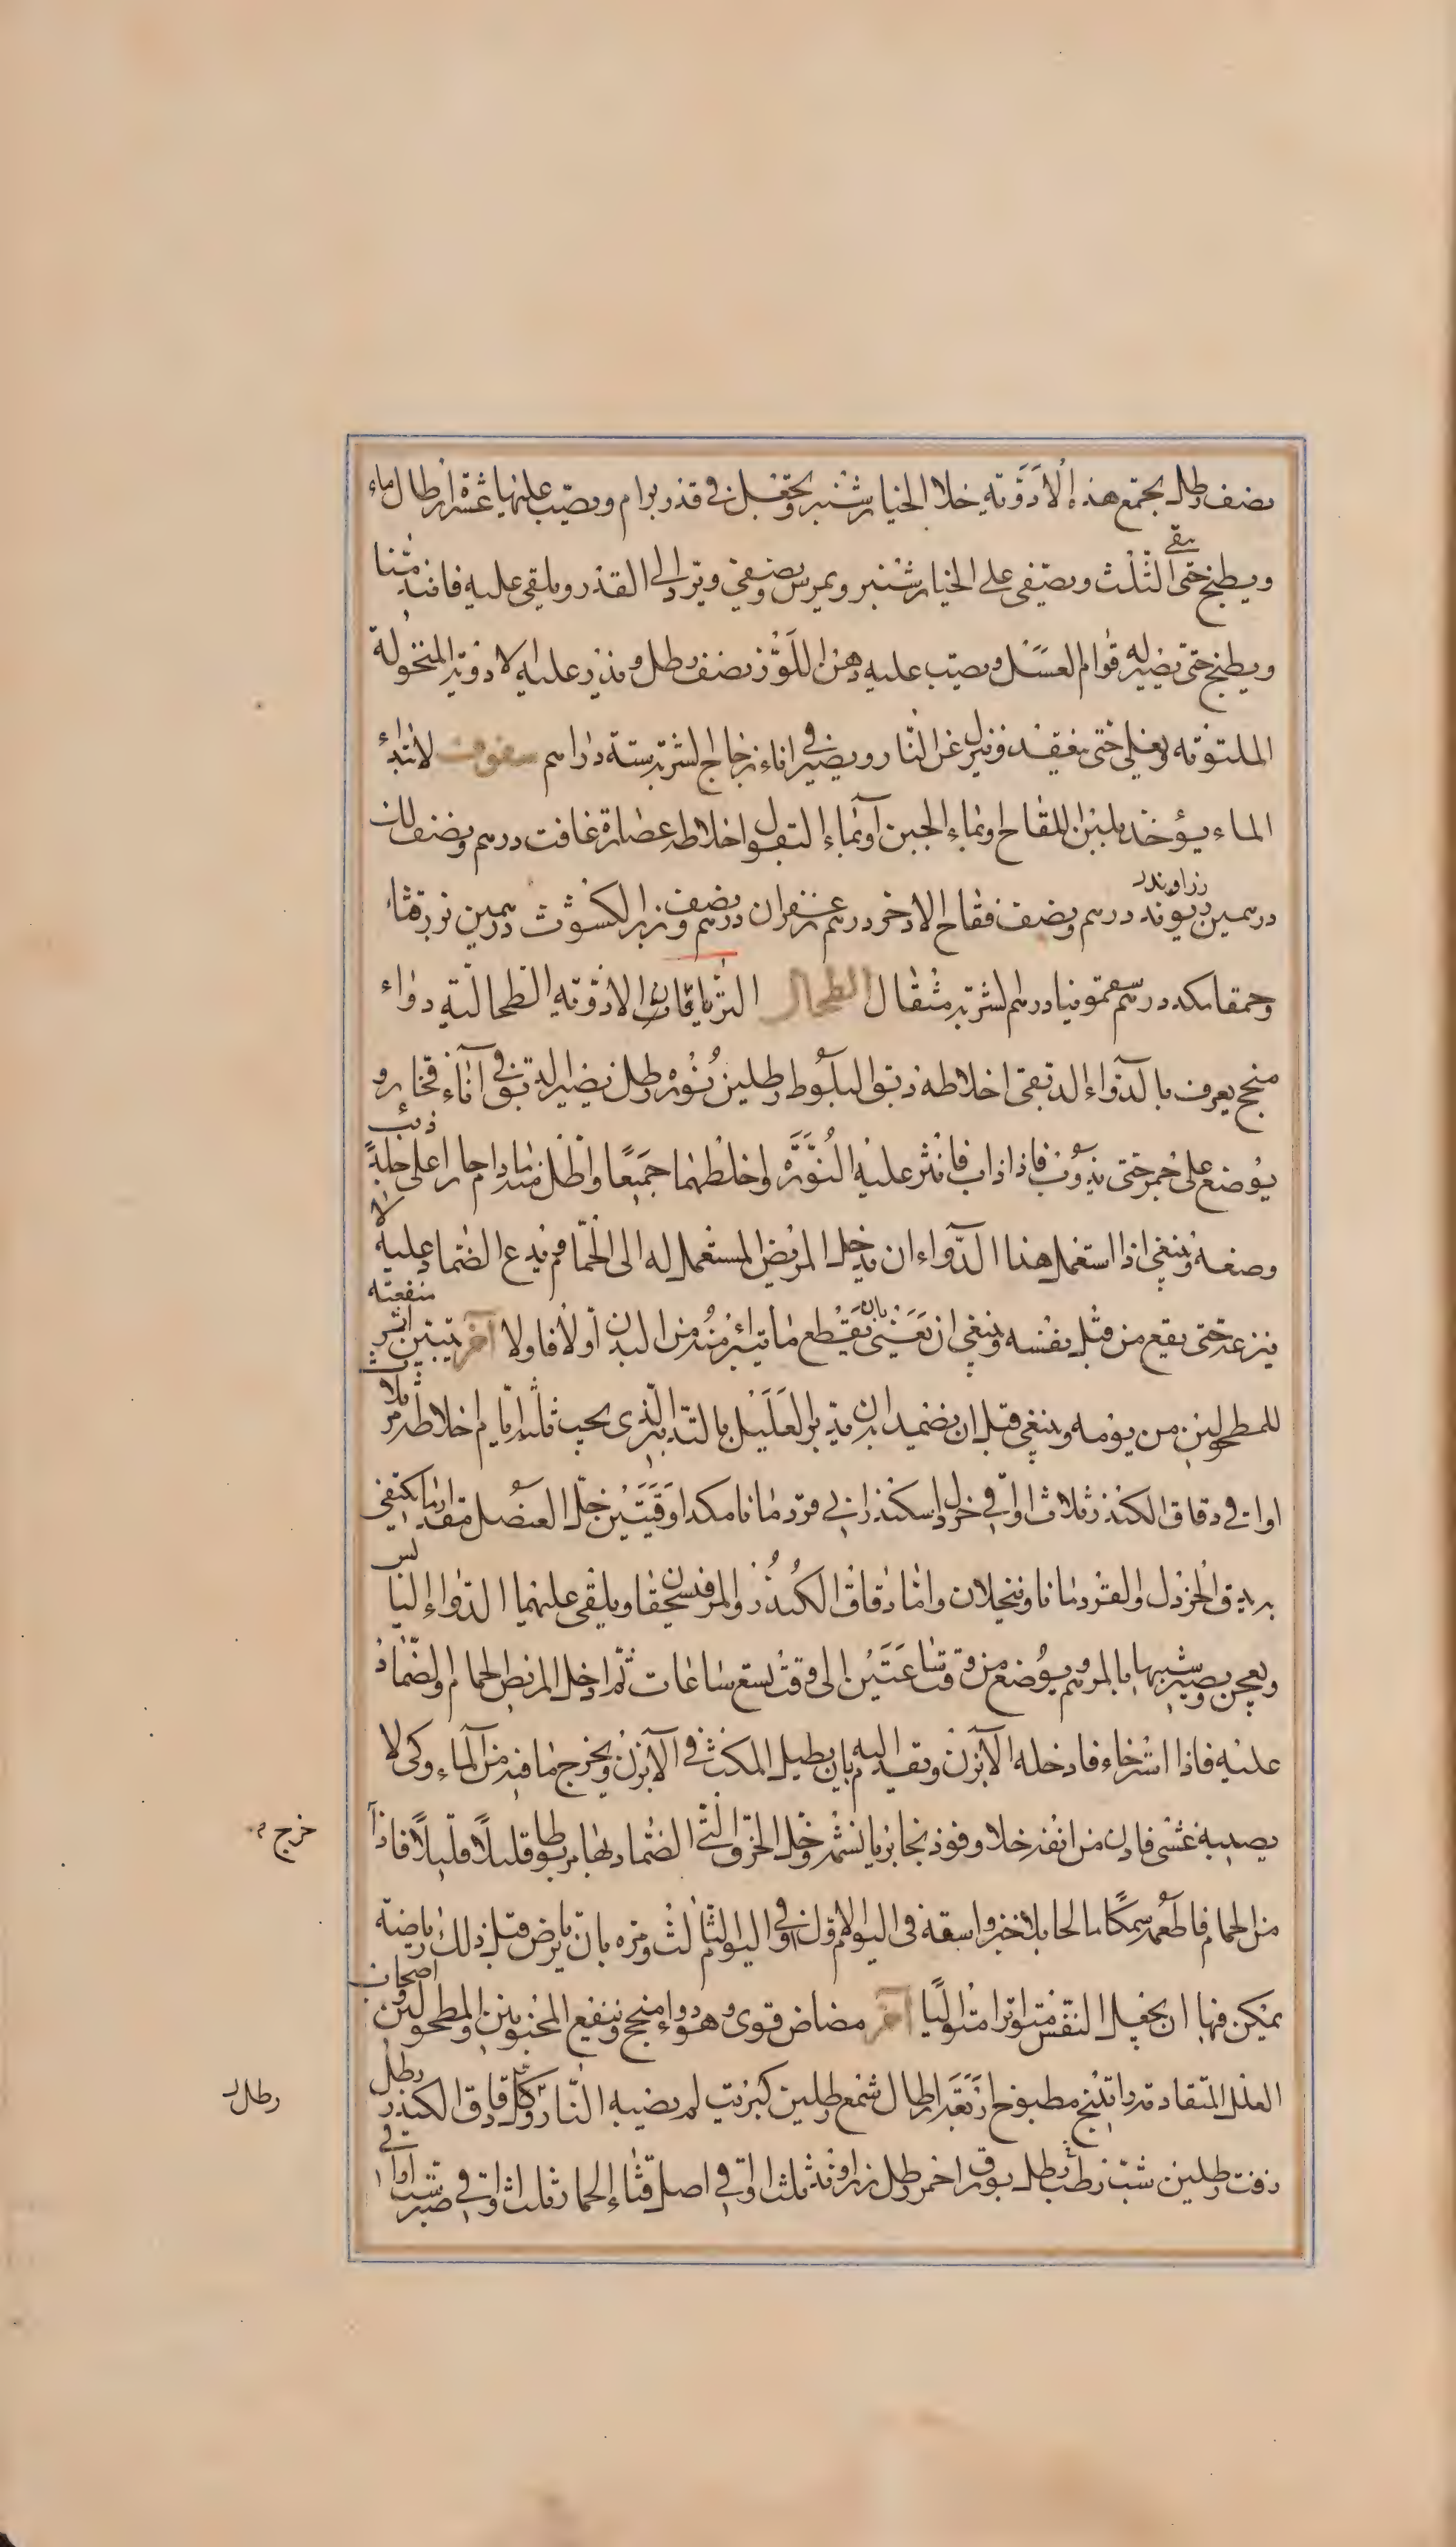 نصف رطل يجمع هذه الادوية خلا الخيارشنبر ويجعل في قدر برام ويصب عليها عشرة ارطال ماء
ويطبخ حتى يبقى الثلث ويصفى على الخيارشنبر ويمرس ويصفى ويرد الى القدر ويلقى عليه فانيذ منا
ويطبخ حتى يصير له قوام العسل ويصب عليه دهن اللوز نصف رطل ويذر عليه الادوية المنخولة
الملتوتة ويغلى حتى ينعقد وينزل عن النار ويصير في اناء زجاج الشربة ستة دراهم سفوف لابتداء
الماء يؤخذ بلبن اللقاح او بماء الجبن او بماء البقول اخلاطه عصارة غافت درهم ونصف لك
درهمين ريوند زراوند درهم ونصف فقاح الاذخر درهم زعفران درهم ونصف وبزر الكشوث درهمين بزر قثاء
وحمقا مكد درهم سقمونيا درهم الشربة مثقال الطحال الترياقات الادوية الطحالية دواء
منجح يعرف بالدواء الدبقى اخلاطه دبق البلوط رطلين نوره رطل يصير الدبق في اناء فخار و
يوضع على جمر حتى يذوب فاذا ذاب فانثر عليه النورة واخلطهما جميعا واطل منه ما دام حارا على جلد ذئب
وضعه وينبغي اذا استعمل هذا الدواء ان يدخل المريض المستعمل له الى الحمام ويدع الضماد عليه لا
ينزعه حتى يقع من قبل نفسه وينبغي ان تعنى بان يقطع ما يتبرا منه من البدن اولا فاولا آخر يتبين اثر منفعته
للمطحولين من يومه وينبغي قبل ان يضمد به ان يدبر العليل بالتدبير الذي يجب ثلثة ايام اخلاطه مر ثلاث
اواقي دقاق الكندر ثلاث اواقي خردل اسكندراني قردمانا مكد اوقيتين خل العنصل مقدار ما يكتفى
به يدق الخردل والقردمانا وينخلان واما دقاق الكندر والمر فيسحقان ويلقى عليهما الدواء اليابس
ويعجن ويصير شبيها بالمرهم ويوضع من وقت ساعتين الى وقت تسع ساعات ثم ادخل المريض الحمام والضماد
عليه فاذا استرخاء فادخله الآبزن وتقدم اليه بان يطيل المكث في الآبزن ويخرج ما فيه من الماء وكى لا
يصيبه غشى فادن من انفه خلا وفوذنجا بريا يشمه وخل الخرق التي الضماد بها مربوطا قليلا قليلا فاذا
خرج
من الحمام فاطعمه سمكا مالحا بلا خبز واسقه في اليوم الاول وفي اليوم الثالث ومره بان يرتاض قبل ذلك رياضة
يمكن فيها ان يجعل النفس متواترا متواليا آخر مضاض قوى وهو دواء منجح وينفع المجنوبين والمطحولين واصحاب
العلل المتقادمة راتينج مطبوخ اربعة ارطال شمع رطلين كبريت لم يصبه النار رطل دقاق الكندر رطل
رطل
زفت رطلين شب رطب رطل بورق احمر رطل زراوند ثلث اواقي اصل قثاء الحمار ثلث اواقي صبر ست اواقي